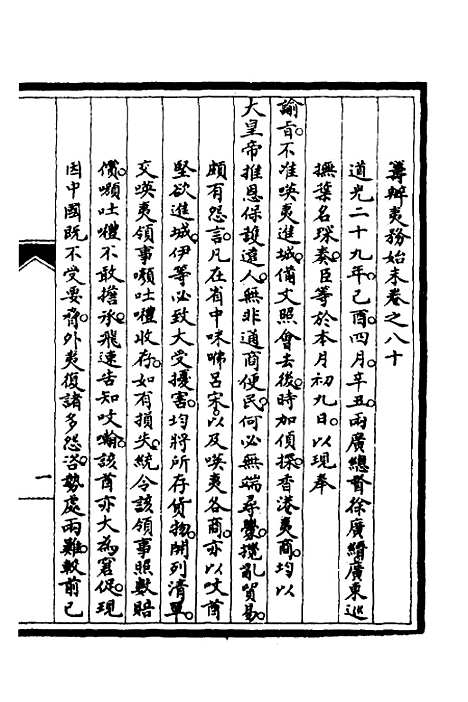 籌辦夷務始末卷之八十
道光二十九年己酉四月辛丑兩廣總督徐廣縉廣東巡
撫葉名琛奏臣等於本月初九日以現奉
諭旨不准㗸夷進城備文照會去後時加偵探香港夷商均以
大皇帝推恩保護遠人無非通商便民何必無端尋釁攪亂貿易
頗有怨言凡在省中咪㖿呂宋以及㗸夷各商亦以㕭酋
堅欲進城伊等必致大受擾害均將所存貨物開列清單
交㗸夷領事嚬吐㘓收存如有損失統令該領事照數賠
償嚬吐㘓不敢擔承飛速告知㕭噏該酋亦大為窘促現
因中國既不受要脅外夷復諸多怨咨勢處兩難較前已
一